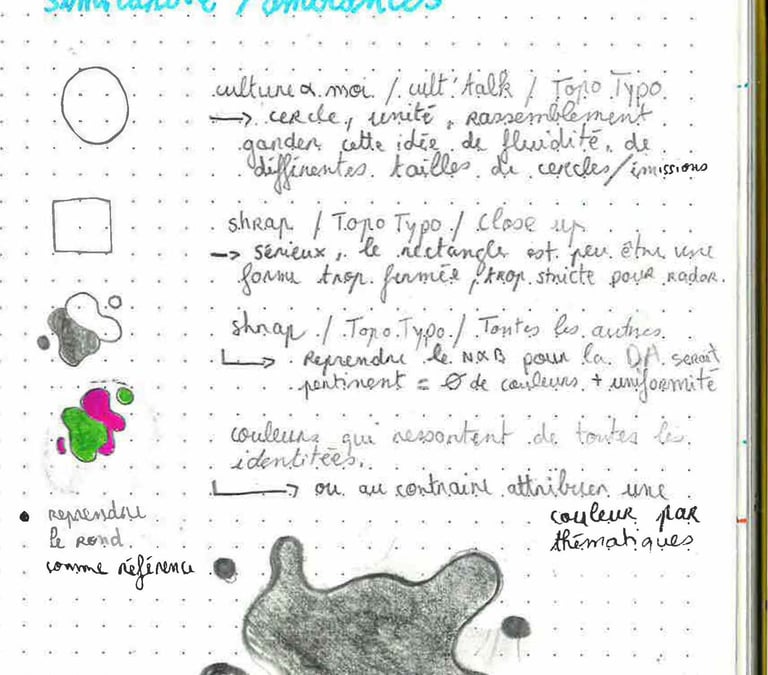 similarité / ambiances
culture & moi / cult'talk / Topo Typo
→ cercle, unité, rassemblement
garder cette idée de fluidité, de
différentes tailles de cercles/émissions
shrap / Topo Typo / Close up
→ sérieux, le rectangle est peu être une
forme trop fermée, trop stricte pour radar.
shrap / Topo Typo / Toutes les autres
→ Reprendre le NXB pour la DA serait
pertinent = Ø de couleurs + uniformité
couleurs qui ressortent de toutes les
identitées.
→ ou au contraire attribuer une
couleur par
thématiques
• reprendre
le rond
comme référence